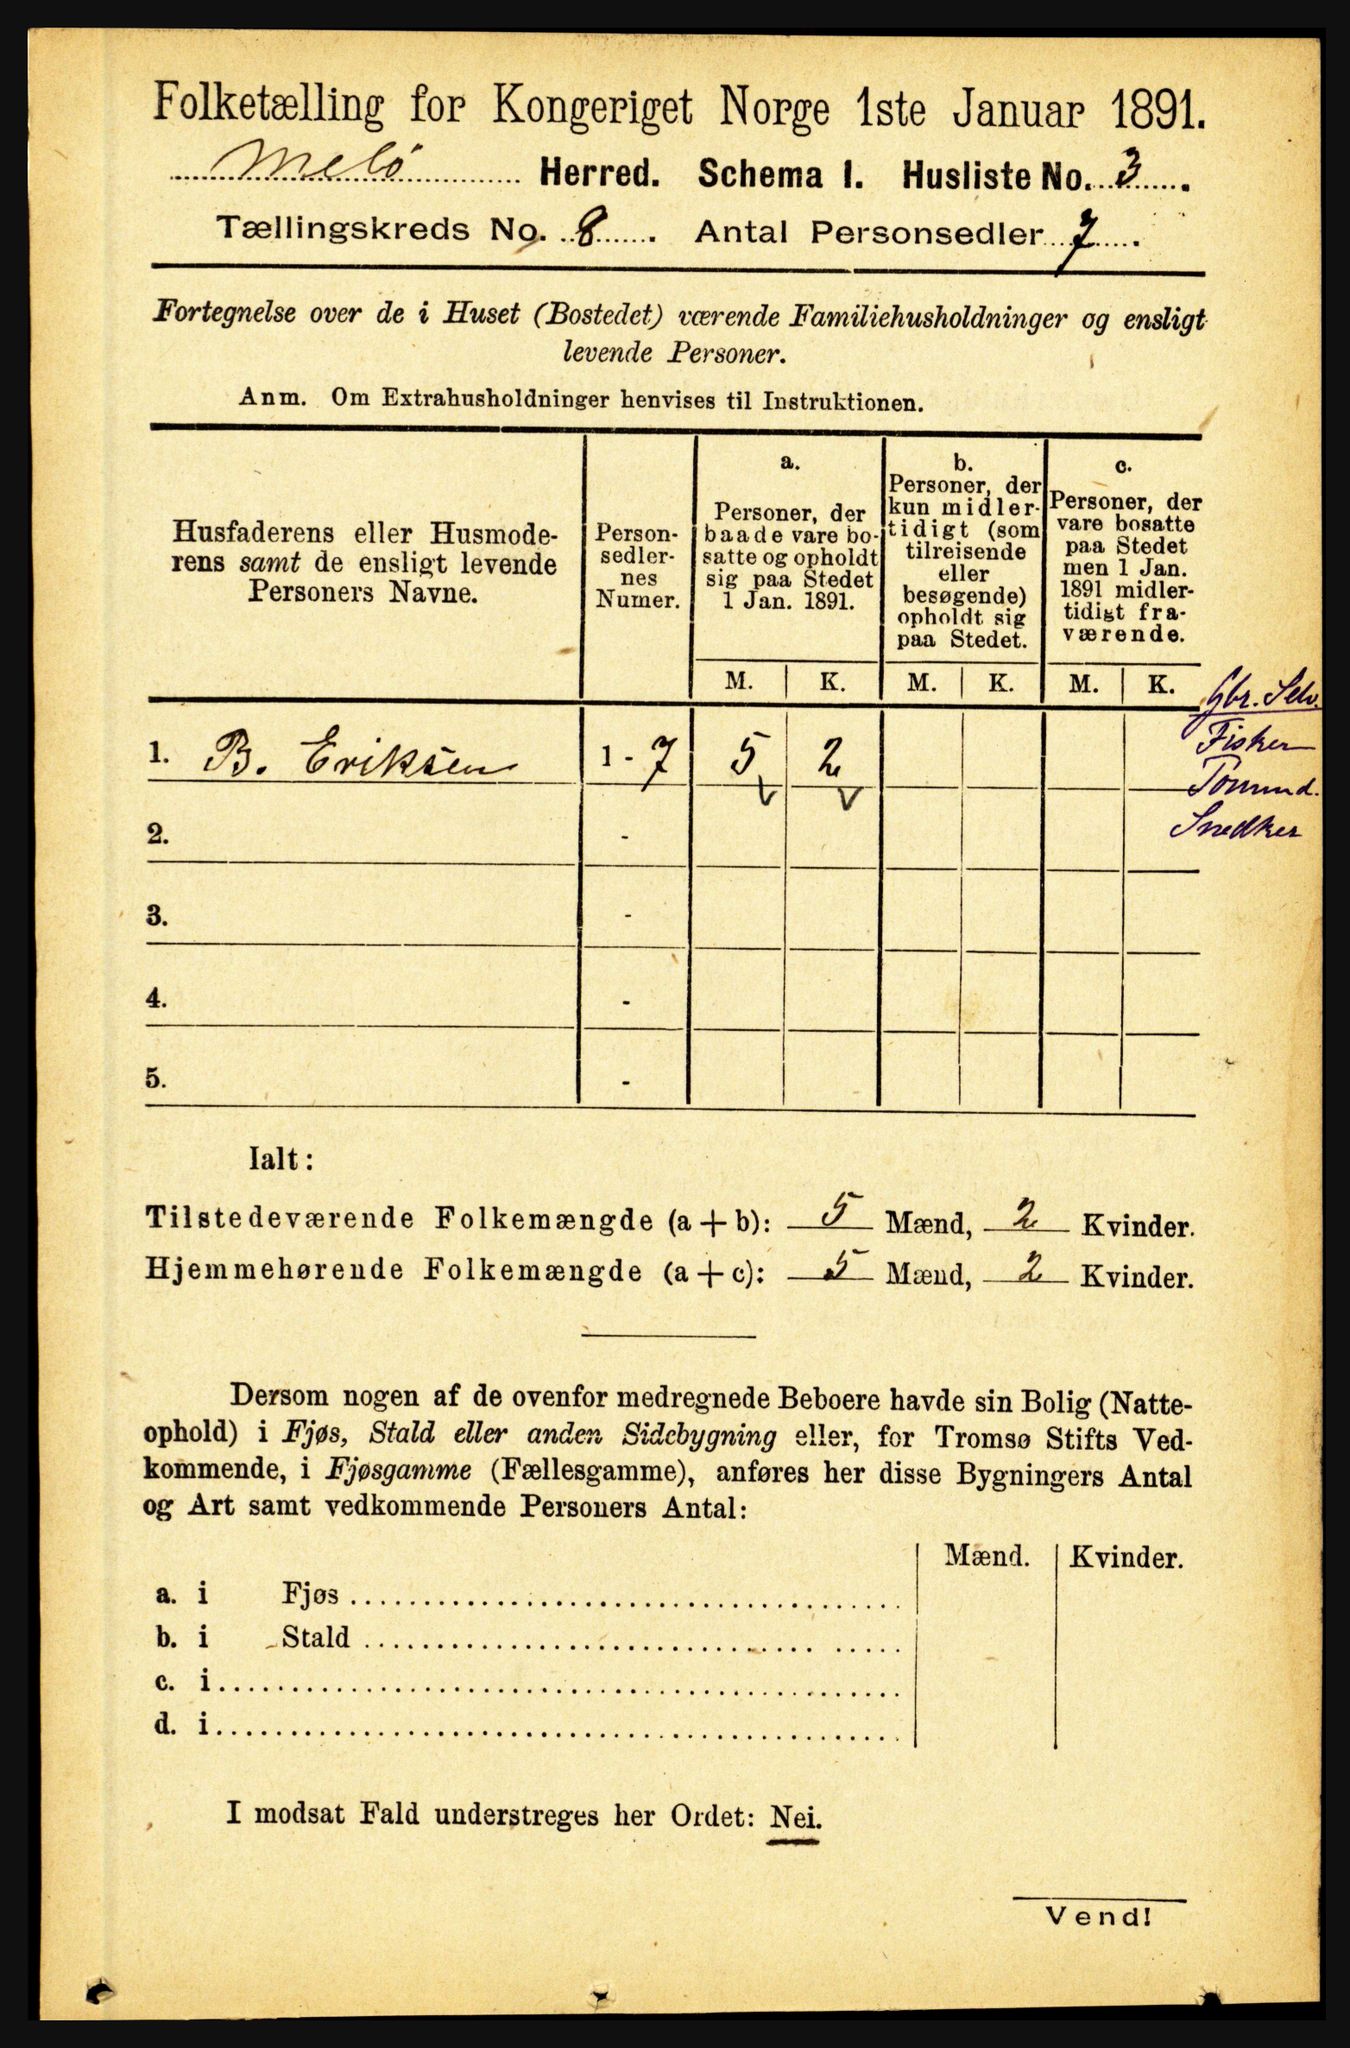 Folketælling for Kongeriget Norge 1ste Januar 1891.
Melö Herred. Schema I. Husliste No. 3.
Tællingskreds No. 8. Antal Personsedler 7.
Fortegnelse over de i Huset (Bostedet) værende Familiehusholdninger og ensligt
levende Personer.
Anm. Om Extrahusholdninger henvises til Instruktionen.
Husfaderens eller Husmode-
rens samt de ensligt levende
Personers Navne.
Person-
sedler-
nes
Numer.
a.
Personer, der
baade vare bo-
satte og opholdt
sig paa Stedet
1 Jan. 1891.
b.
Personer, der
kun midler-
tidigt (som
tilreisende
eller
besøgende)
opholdt sig
paa Stedet.
c.
Personer, der
vare bosatte
paa Stedet
men 1 Jan.
1891 midler-
tidigt fra-
værende.
M. K. M. K. M. K.
Gbr. Selv.
Fisker
1. B. Eriksen 1 - 7 5 2
Snedker
2. -
3. -
4. -
5. -
Ialt:
Tilstedeværende Folkemængde (a + b): 5 Mænd, 2 Kvinder.
Hjemmehørende Folkemængde (a + c): 5 Mænd, 2 Kvinder.
Dersom nogen af de ovenfor medregnede Beboere havde sin Bolig (Natte-
ophold) i Fjøs, Stald eller anden Sidebygning eller, for Tromsø Stifts Ved-
kommende, i Fjøsgamme (Fællesgamme), anføres her disse Bygningers Antal
og Art samt vedkommende Personers Antal:
Mænd. Kvinder.
a. i Fjøs
b. i Stald
c. i
d. i
I modsat Fald understreges her Ordet: Nei.
Vend!